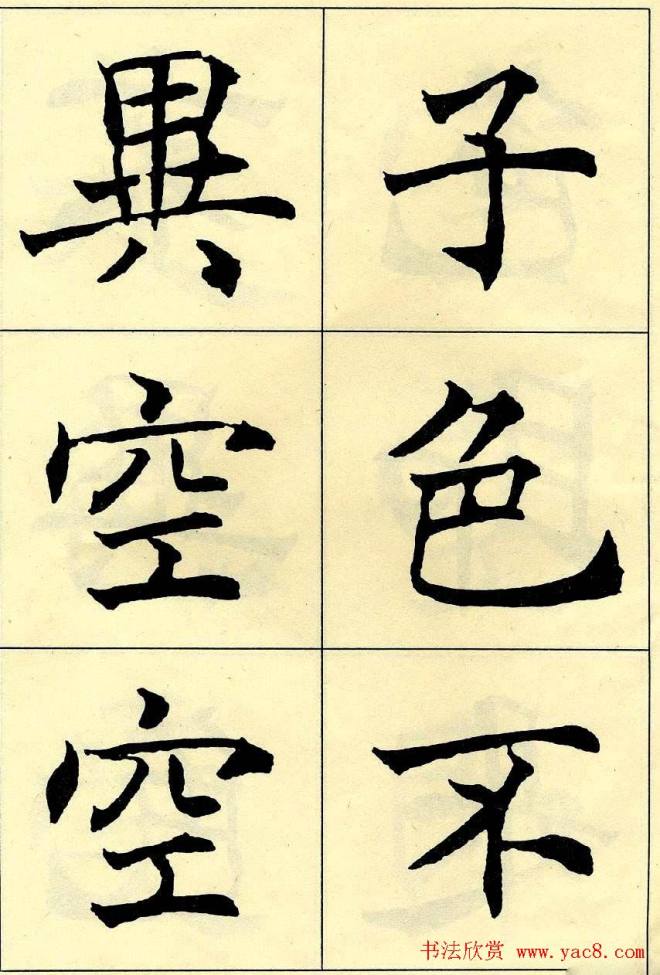 子色不
異空空
书法欣赏 www.yac8.com